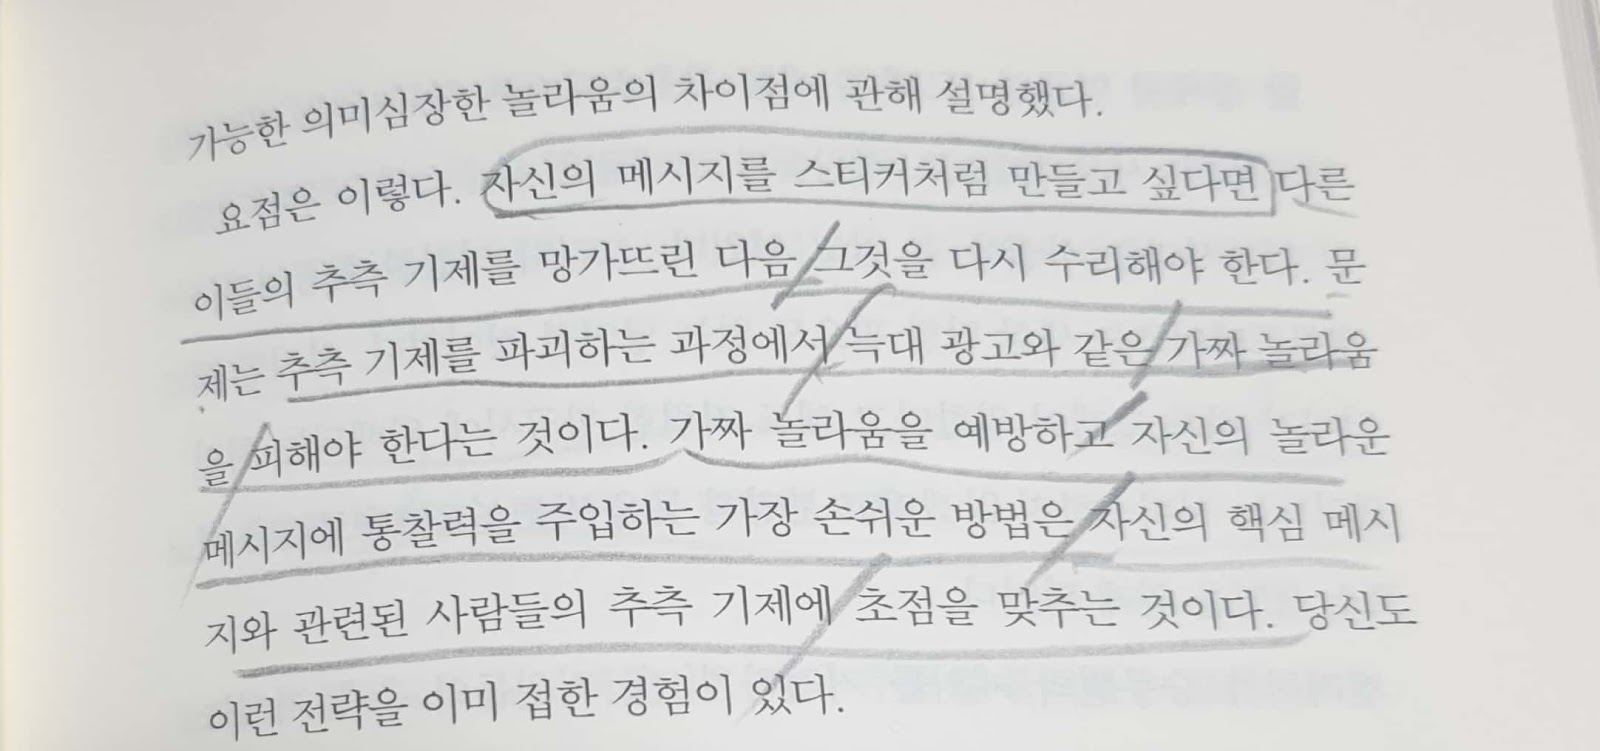 가능한 의미심장한 놀라움의 차이점에 관해 설명했다.
요점은 이렇다. 자신의 메시지를 스티커처럼 만들고 싶다면 다른
이들의 추측 기제를 망가뜨린 다음 그것을 다시 수리해야 한다. 문
제는 추측 기제를 파괴하는 과정에서 늑대 광고와 같은 가짜 놀라움
을 피해야 한다는 것이다. 가짜 놀라움을 예방하고 자신의 놀라운
메시지에 통찰력을 주입하는 가장 손쉬운 방법은 자신의 핵심 메시
지와 관련된 사람들의 추측 기제에 초점을 맞추는 것이다. 당신도
이런 전략을 이미 접한 경험이 있다.